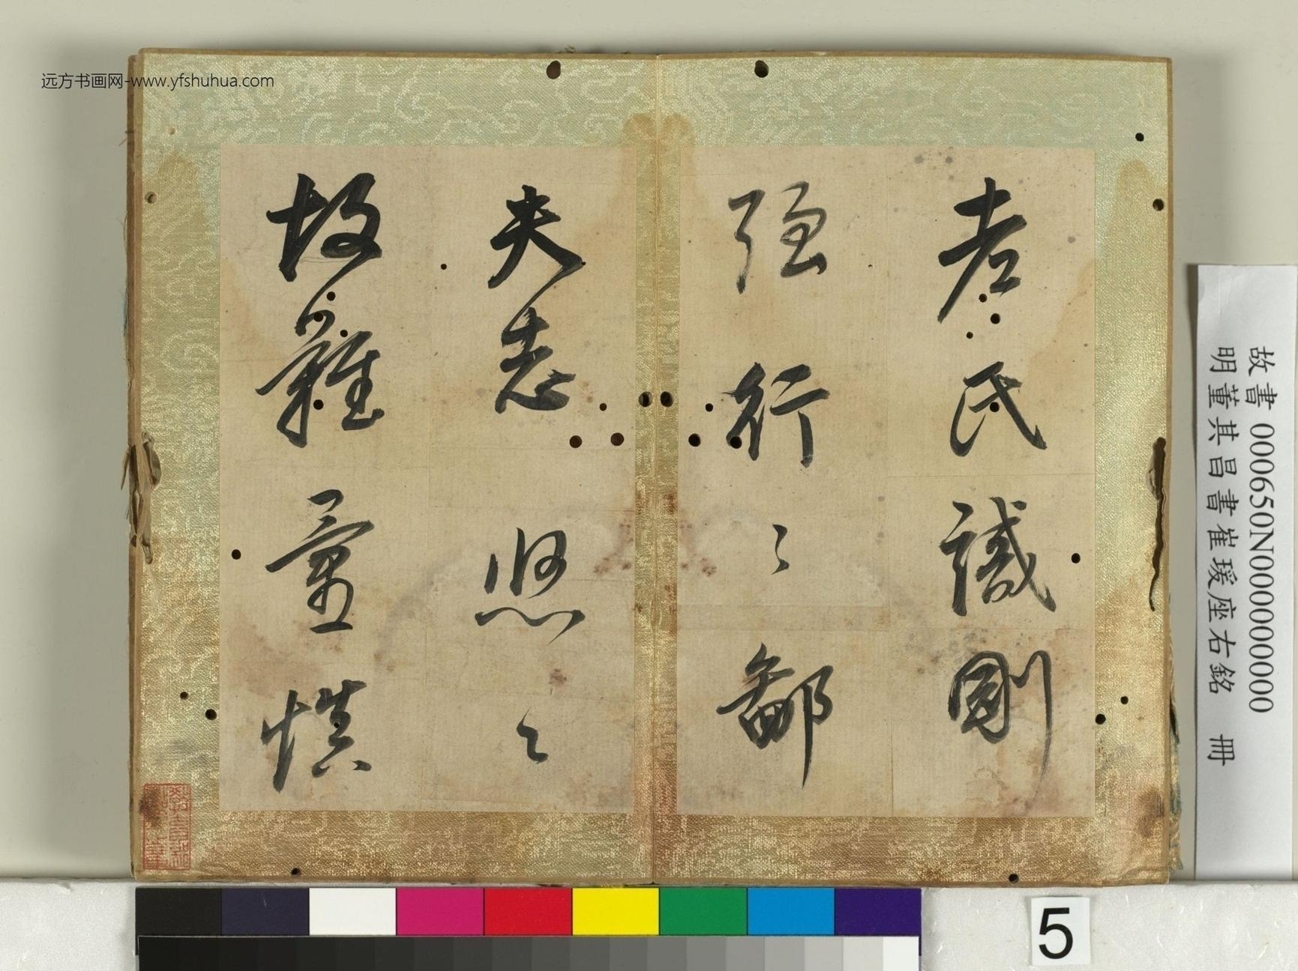 远方书画网-www.yfshuhua.com
老氏誡剛
强行〻鄙
夫志悠〻
故難量慎
故書000650N000000000
明董其昌書崔瑗座右銘 冊
5